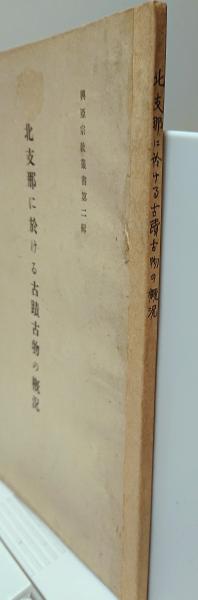 興亞宗教叢書第二輯
北支那に於ける古蹟古物の概況
北支那に於ける古蹟古物の概況